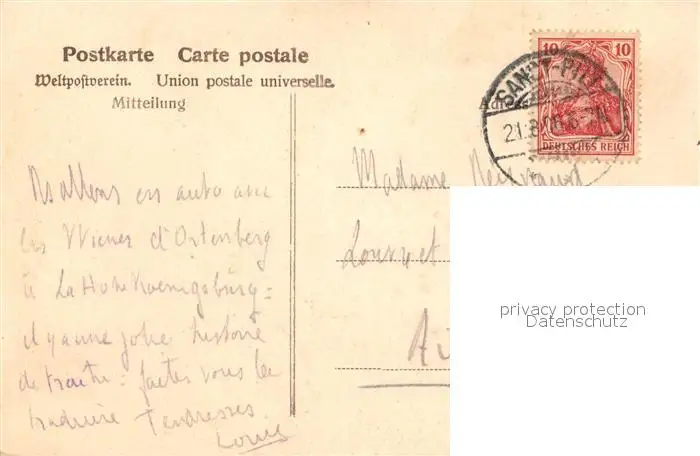 Postkarte Carte postale
Weltpostverein. Union postale universelle.
Mitteilung
Adresse
10 10
DEUTSCHES REICH
SANKT-PILT
21.8.06
allons en auto avec
les Wiener d'Ostenberg
à La Hohkoenigsburg =
il y a une jolie histoire
de traître : faites vous la
traduire Tendresses
Louis
Madame
Louvret
privacy protection
Datenschutz